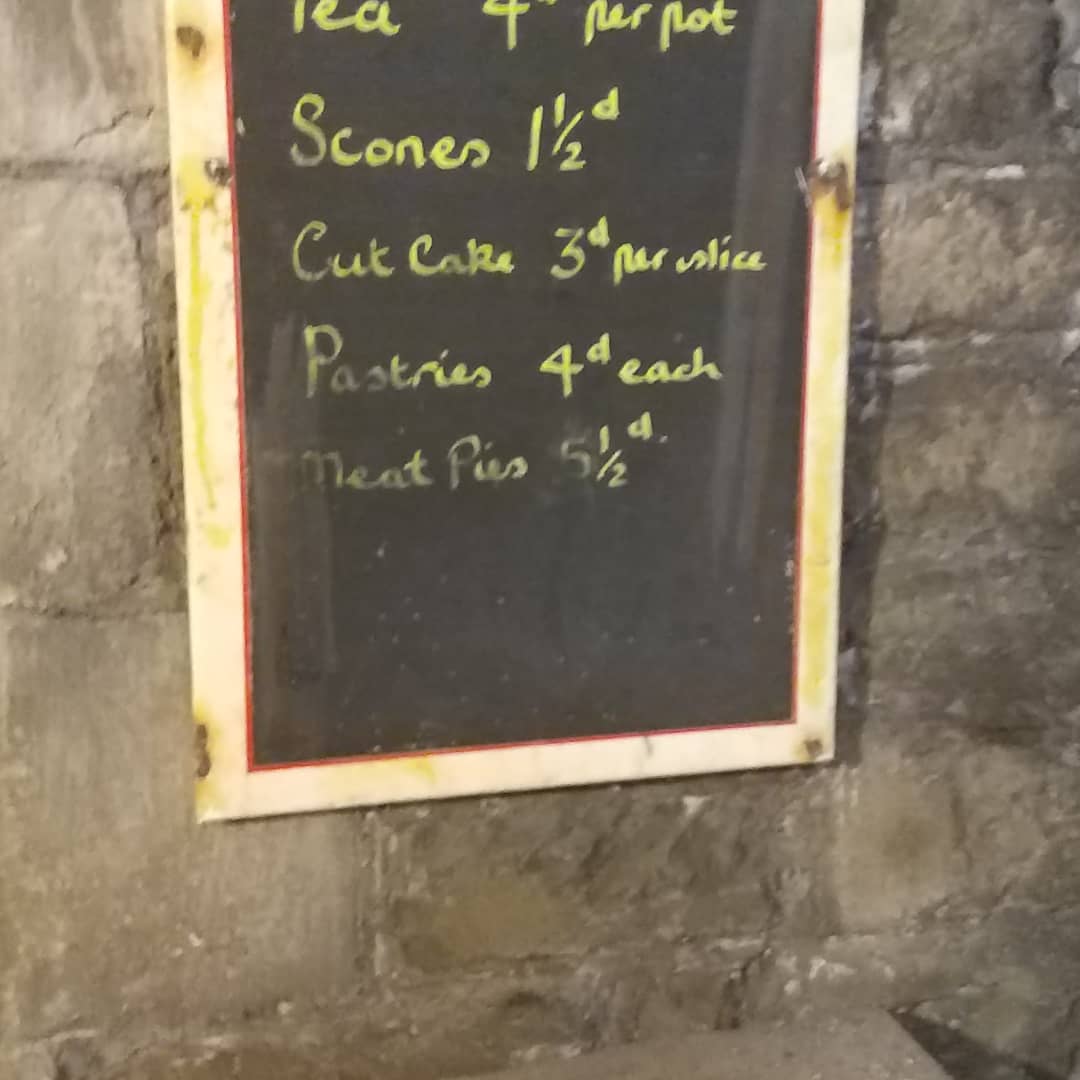 Tea 4d per pot
Scones 1½d
Cut Cake 3d per slice
Pastries 4d each
Meat Pies 5½d.